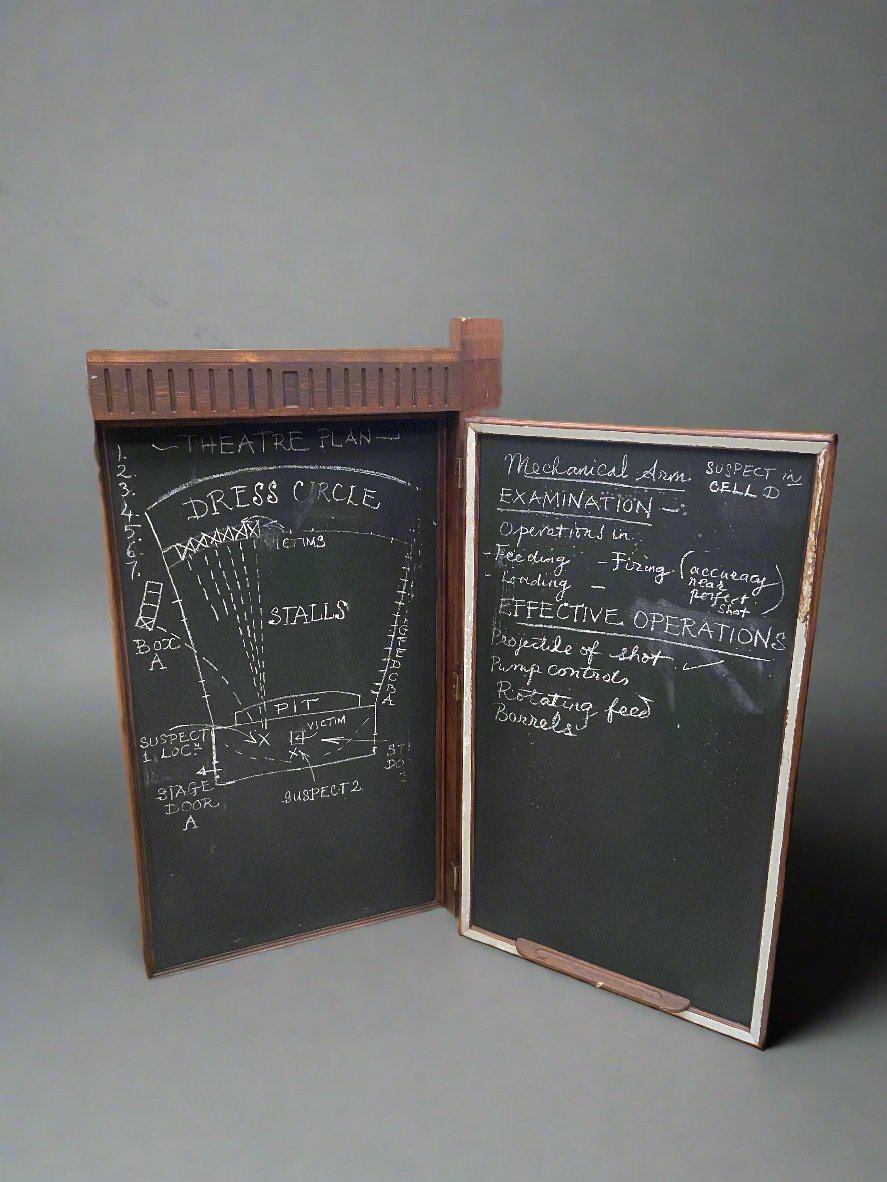 THEATRE PLAN
1.
2.
3.
4.
5.
6.
7.
DRESS CIRCLE
VICTIMS
STALLS
BOX
A
G
F
E
D
C
B
A
PIT
VICTIM
SUSPECT
1 LOCN
X
X
STAGE
DOOR
A
SUSPECT 2
Mechanical Arm
SUSPECT in
CELL D
EXAMINATION -:
Operations in
- Feeding - Firing (accuracy
near
perfect
shot)
- Loading -
EFFECTIVE OPERATIONS
Projectile of shot ✓
Pump controls
Rotating feed
Barrels